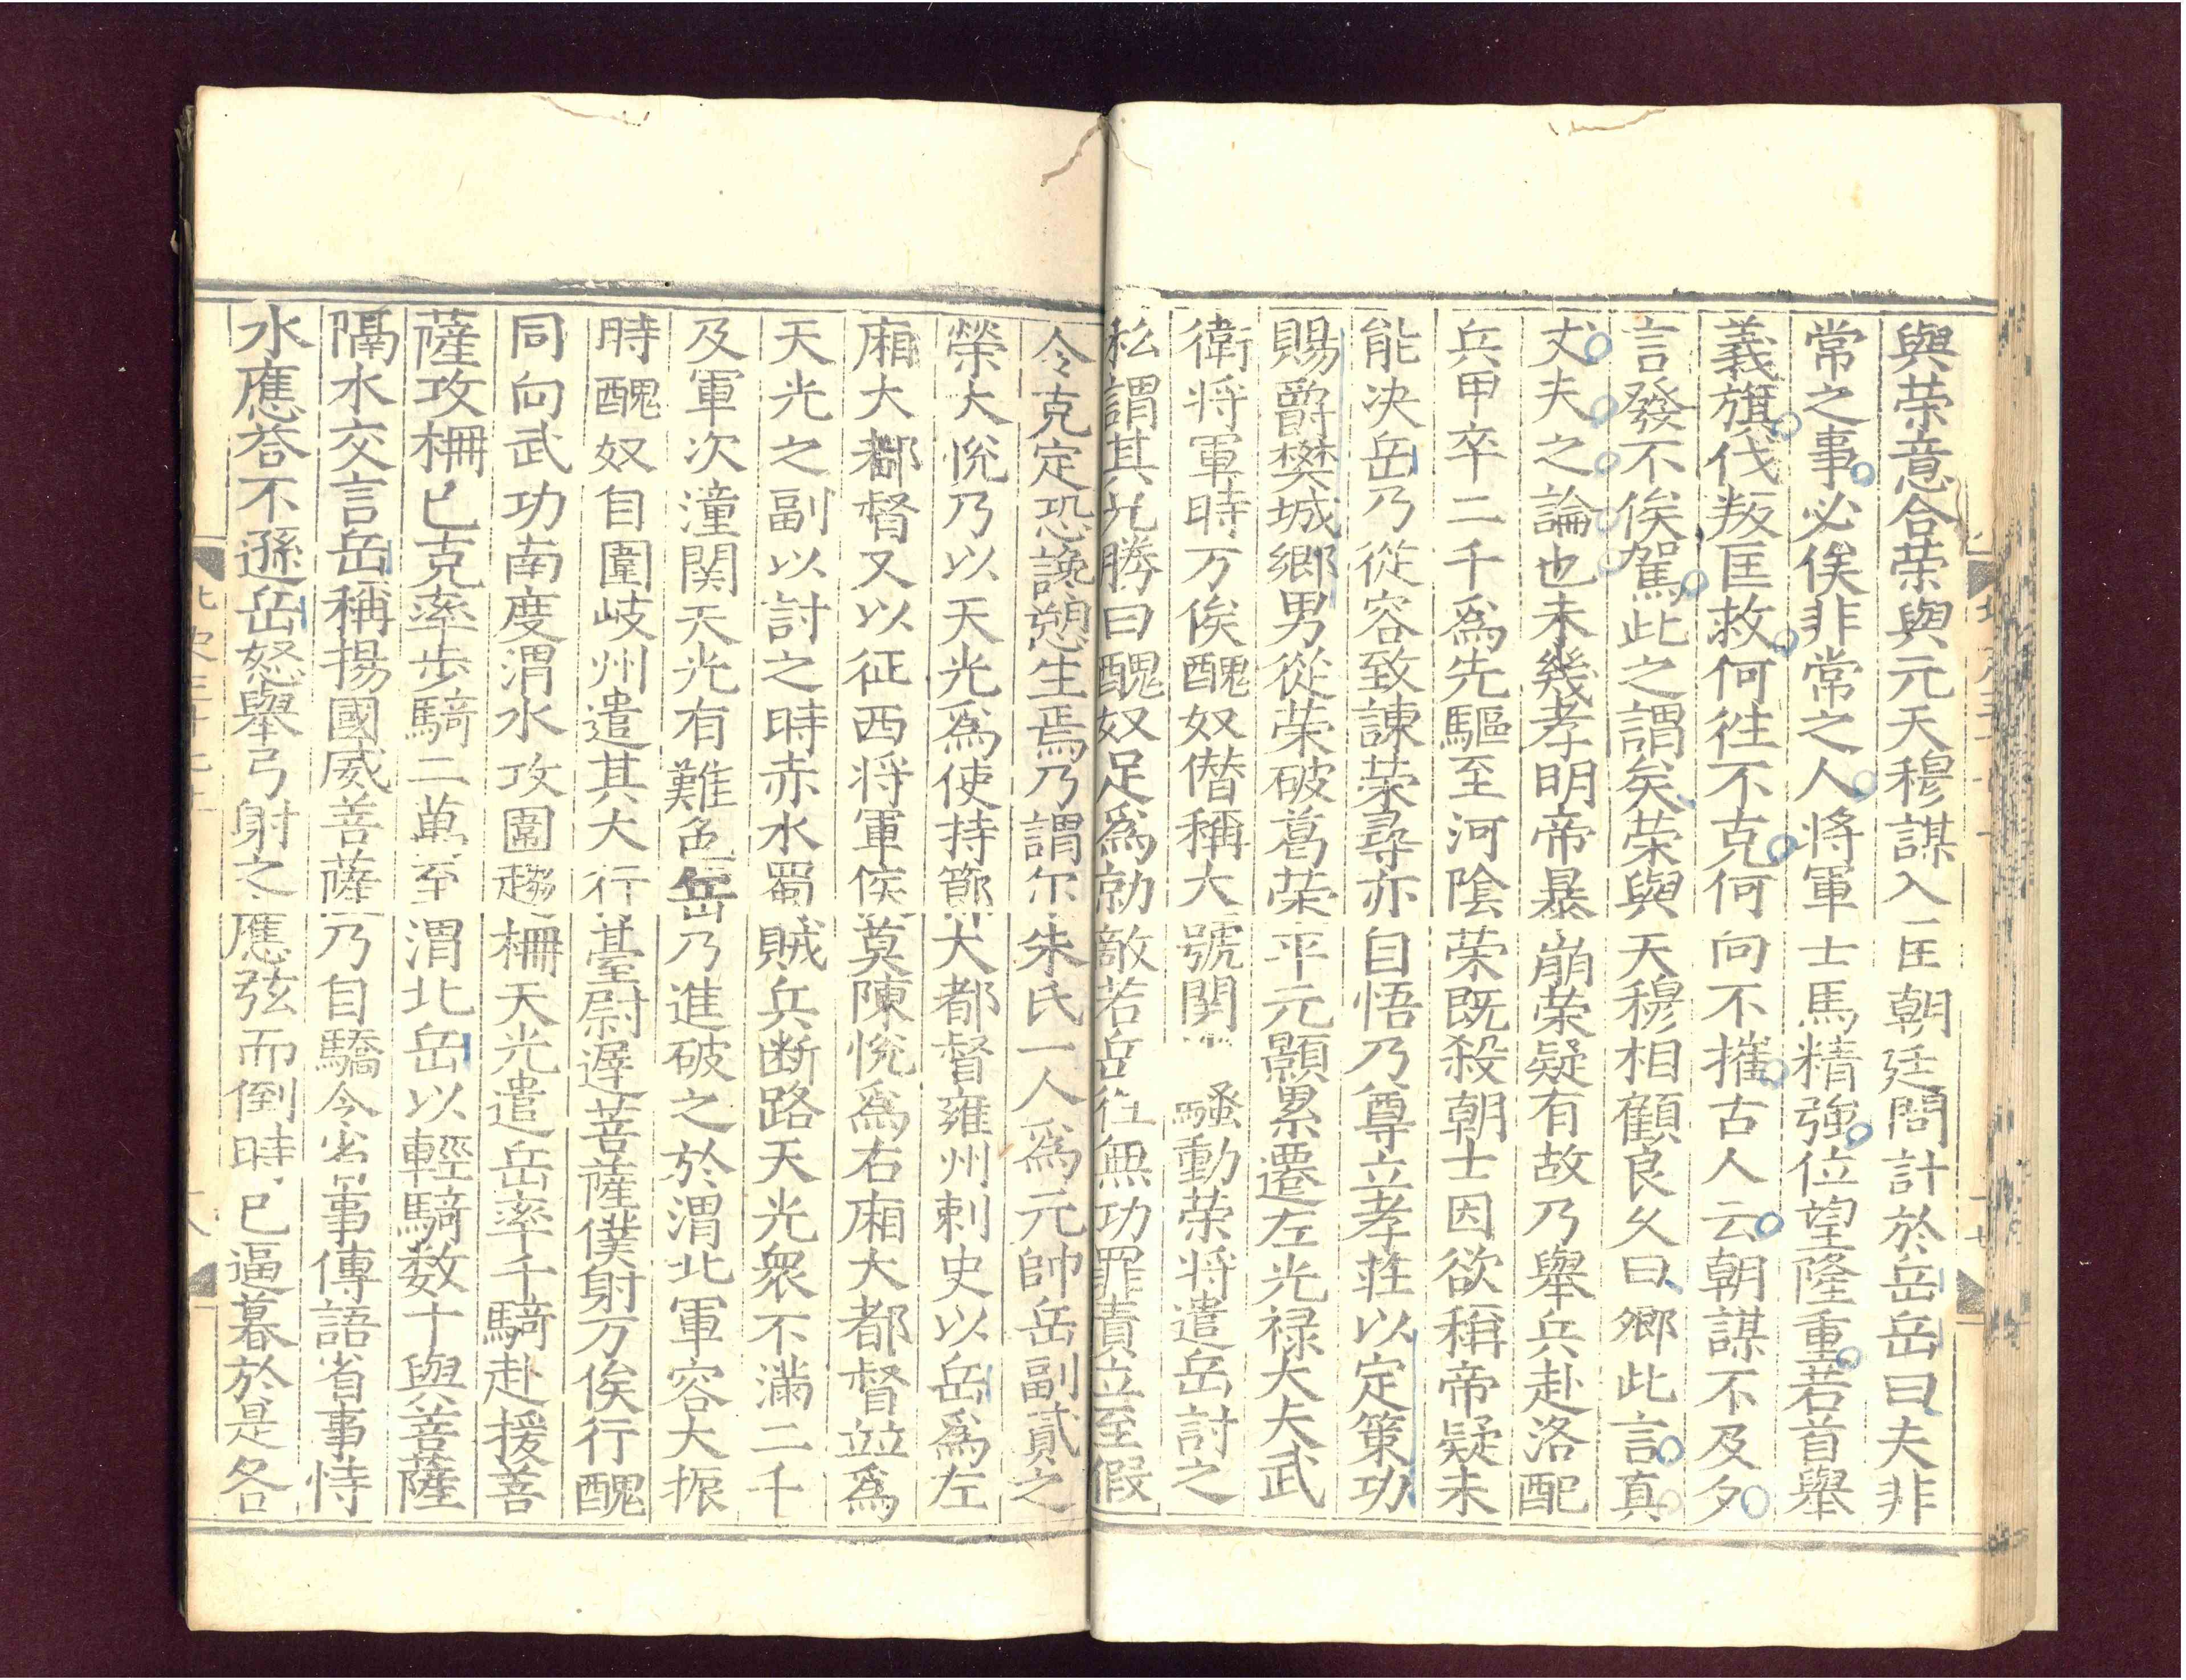 與荣意合荣與元天穆謀入匡朝廷問計於岳岳曰夫非
常之事必俟非常之人将軍士馬精強位望隆重若首舉
義旗伐叛匡救何往不克何向不摧古人云朝謀不及夕
言發不俟駕此之謂矣荣與天穆相顧良久曰卿此言真
丈夫之論也未幾孝明帝暴崩荣疑有故乃舉兵赴洛配
兵甲卒二千爲先驅至河陰荣既殺朝士因欲稱帝疑未
能决岳乃從容致諫荣尋亦自悟乃尊立孝莊以定策功
賜爵樊城鄉男從荣破葛荣平元顥累遷左光禄大夫武
衛将軍時万俟醜奴僣稱大號関騷動荣将遣岳討之
私謂其兄勝曰醜奴足爲勍敵若岳往無功罪責立至假
令克定恐讒愬生焉乃謂尔朱氏一人爲元帥岳副貳之
榮大悅乃以天光爲使持節大都督雍州刺史以岳爲左
廂大都督又以征西将軍侯莫陳悅爲右廂大都督並爲
天光之副以討之時赤水蜀賊兵断路天光衆不滿二千
及軍次潼関天光有難色岳乃進破之於渭北軍容大振
時醜奴自圍岐州遣其大行臺尉遲菩薩僕射万俟行醜
同向武功南度渭水攻圍趍柵天光遣岳率千騎赴援菩
薩攻柵已克率步騎二萬至渭北岳以輕騎数十與菩薩
隔水交言岳稱揚國威菩薩乃自驕令省事傳語省事恃
水應荅不遜岳怒舉弓射之應弦而倒時已逼暮於是各
北史三十七
十八